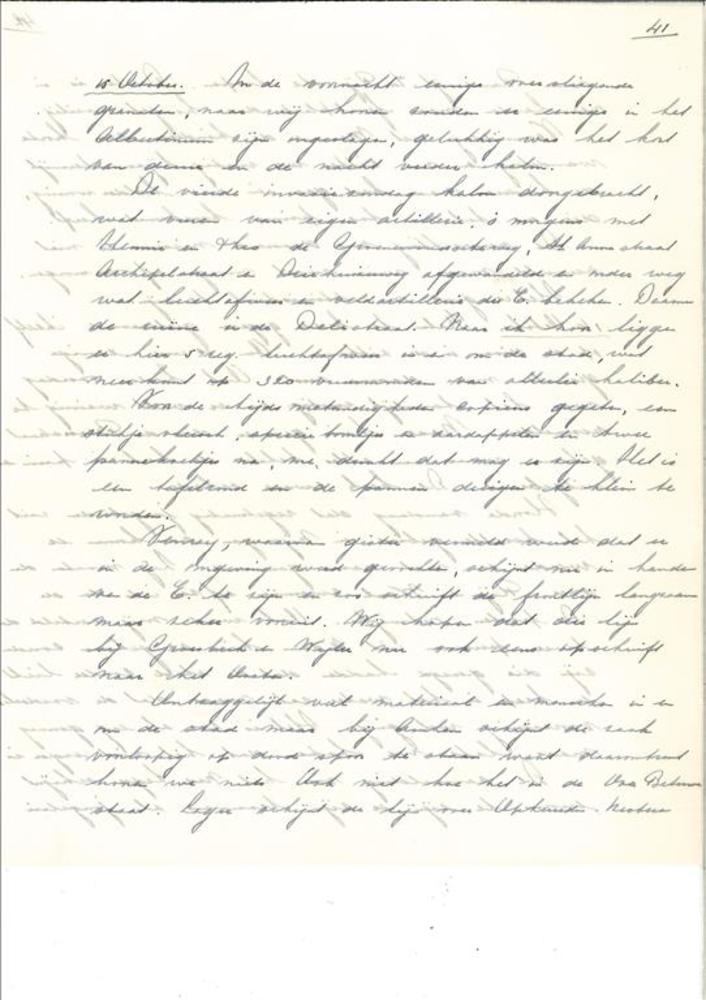 41
15 October. In de voornacht eenige overvliegende
granaten, naar wij hooren zouden er eenige in het
Albertinum zijn ingeslagen, gelukkig was het kort
van duur en de nacht verder kalm.
De vierde invasiezondag kalm doorgebracht,
wat vuren van eigen artillerie, 's morgens met
Hennie en Theo de Groenewoudscheweg, St Annastraat
Archipelstraat en afgewandeld en onder weg
wat luchtafweer en veldartillerie der E. bekeken. Daarna
de ruïne in de Delistraat. Naar ik hoor liggen
er hier 5 reg. luchtafweer in en om de stad, wat
neer komt op 320 vuurmonden van allerlei kaliber.
Voor de tijdsomstandigheden copieus gegeten, een
stukje vleesch, boontjes en aardappelen en twee
pannekoekjes na, me dunkt dat mag er zijn. Het is
een tafelrond en de pannen dreigen te klein te
worden.
Venray, waarvan gister vermeld werd dat er
in de omgeving werd gevochten, schijnt nu in handen
van de E. te zijn en zoo schuift de frontlijn langzaam
maar zeker vooruit. Wij hopen dat die lijn
bij Groesbeek en Wyler nu ook eens opschuift
naar het Oosten.
Ontzaggelijk veel materiaal en manschappen in en
om de stad maar bij Arnhem schijnt de zaak
voorloopig op dood spoor te staan want daaromtrent
hooren we niets. Ook niet hoe het in de Over Betuwe
staat. schijnt de lijn over Opheusden